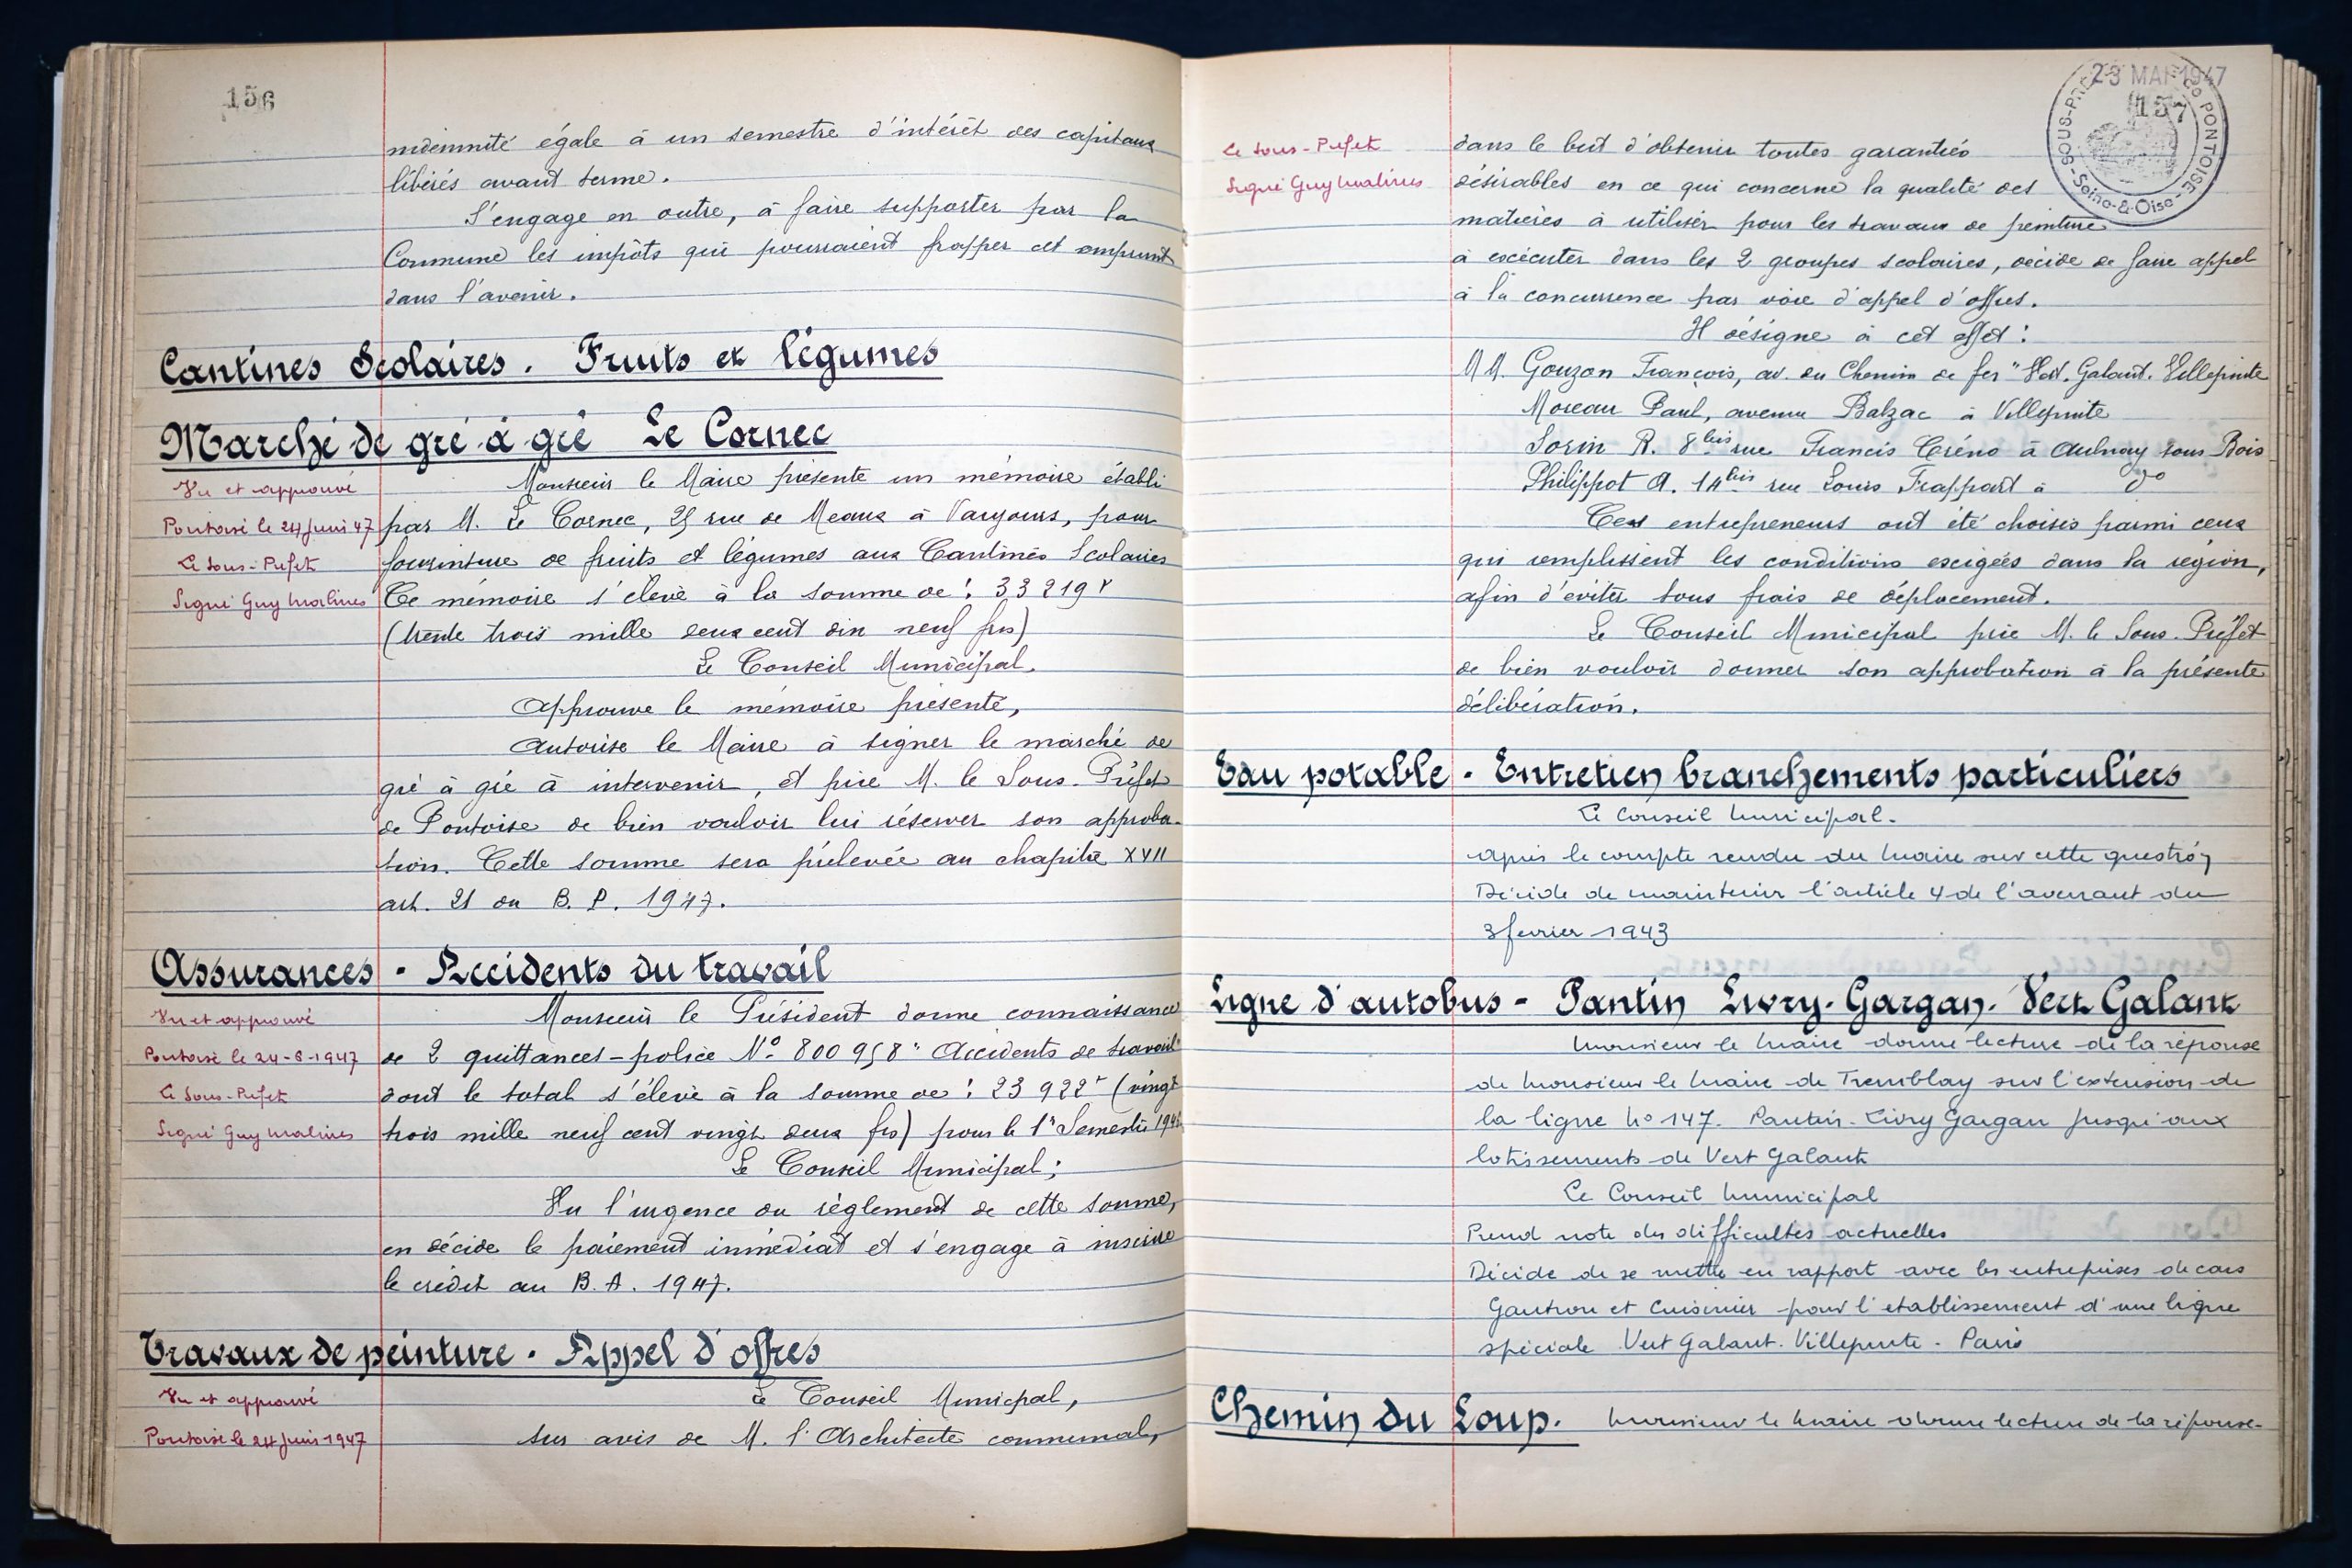 156
indemnité égale à un semestre d'intérêt des capitaux
libérés avant terme.
S'engage en outre, à faire supporter par la
Commune les impôts qui pourraient frapper cet emprunt
dans l'avenir.
Cantines Scolaires. Fruits et légumes
Marché de gré à gré Le Cornec
Vu et approuvé
Pontoise le 24 Juin 47
Le Sous-Préfet
Signé Guy Malines
Monsieur le Maire présente un mémoire établi
par M. Le Cornec, 25 rue de Meaux à Vaujours, pour
fourniture de fruits et légumes aux Cantines Scolaires
Ce mémoire s'élève à la somme de : 33 219 f
(trente trois mille deux cent dix neuf frs)
Le Conseil Municipal.
Approuve le mémoire présenté,
Autorise le Maire à signer le marché de
gré à gré à intervenir, et prie M. le Sous-Préfet
de Pontoise de bien vouloir lui réserver son approba-
tion. Cette somme sera prélevée au chapitre XVII
art. 21 du B. P. 1947.
Assurances - Accidents du travail
Vu et approuvé
Pontoise le 24-6-1947
Le Sous-Préfet
Signé Guy Malines
Monsieur le Président donne connaissance
de 2 quittances - police N° 800 958 "Accidents de travail"
dont le total s'élève à la somme de : 23 922 f (vingt
trois mille neuf cent vingt deux frs) pour le 1r Semestre
Le Conseil Municipal ;
Vu l'urgence du règlement de cette somme,
en décide le paiement immédiat et s'engage à inscrire
le crédit au B. A. 1947.
Travaux de peinture. Appel d'offres
Vu et approuvé
Pontoise le 24 Juin 1947
Le Conseil Municpal,
sur avis de M. l'Architecte communal,
23 MAI 1947
157
SOUS-PRÉFECTURE DE PONTOISE
Seine-&-Oise
Le Sous-Préfet
Signé Guy Malines
dans le but d'obtenir toutes garanties
désirables en ce qui concerne la qualité des
matières à utiliser pour les travaux de peinture
à exécuter dans les 2 groupes scolaires, décide de faire appel
à la concurrence par voie d'appel d'offres.
Il désigne à cet effet :
MM. Gouzon François, av. du Chemin de fer "Vert. Galant. Villepinte
Moreau Paul, avenue Balzac à Villepinte
Sorin R. 8 bis rue Francis Créno à Aulnay sous Bois
Philippot A. 14 bis rue Louis Frappart à do
Ces entrepreneurs ont été choisis parmi ceux
qui remplissent les conditions exigées dans la région,
afin d'éviter tous frais de déplacement.
Le Conseil Municipal prie M. le Sous-Préfet
de bien vouloir donner son approbation à la présente
délibération.
Eau potable. Entretien branchements particuliers
Le Conseil Municipal.
après le compte rendu du Maire sur cette question
Décide de maintenir l'article 4 de l'avenant du
3 février 1943
Ligne d'autobus - Pantin Livry-Gargan. Vert Galant
Monsieur le Maire donne lecture de la réponse
de Monsieur le Maire de Tremblay sur l'extension de
la ligne No 147. Pantin. Livry Gargan jusqu'aux
lotissements de Vert Galant
Le Conseil Municipal
Prend note des difficultés actuelles
Décide de se mettre en rapport avec les entreprises de cars
Gautron et Cuisinier pour l'etablissement d'une ligne
spéciale Vert Galant. Villepinte - Paris
Chemin du Loup. Monsieur le Maire donne lecture de la réponse